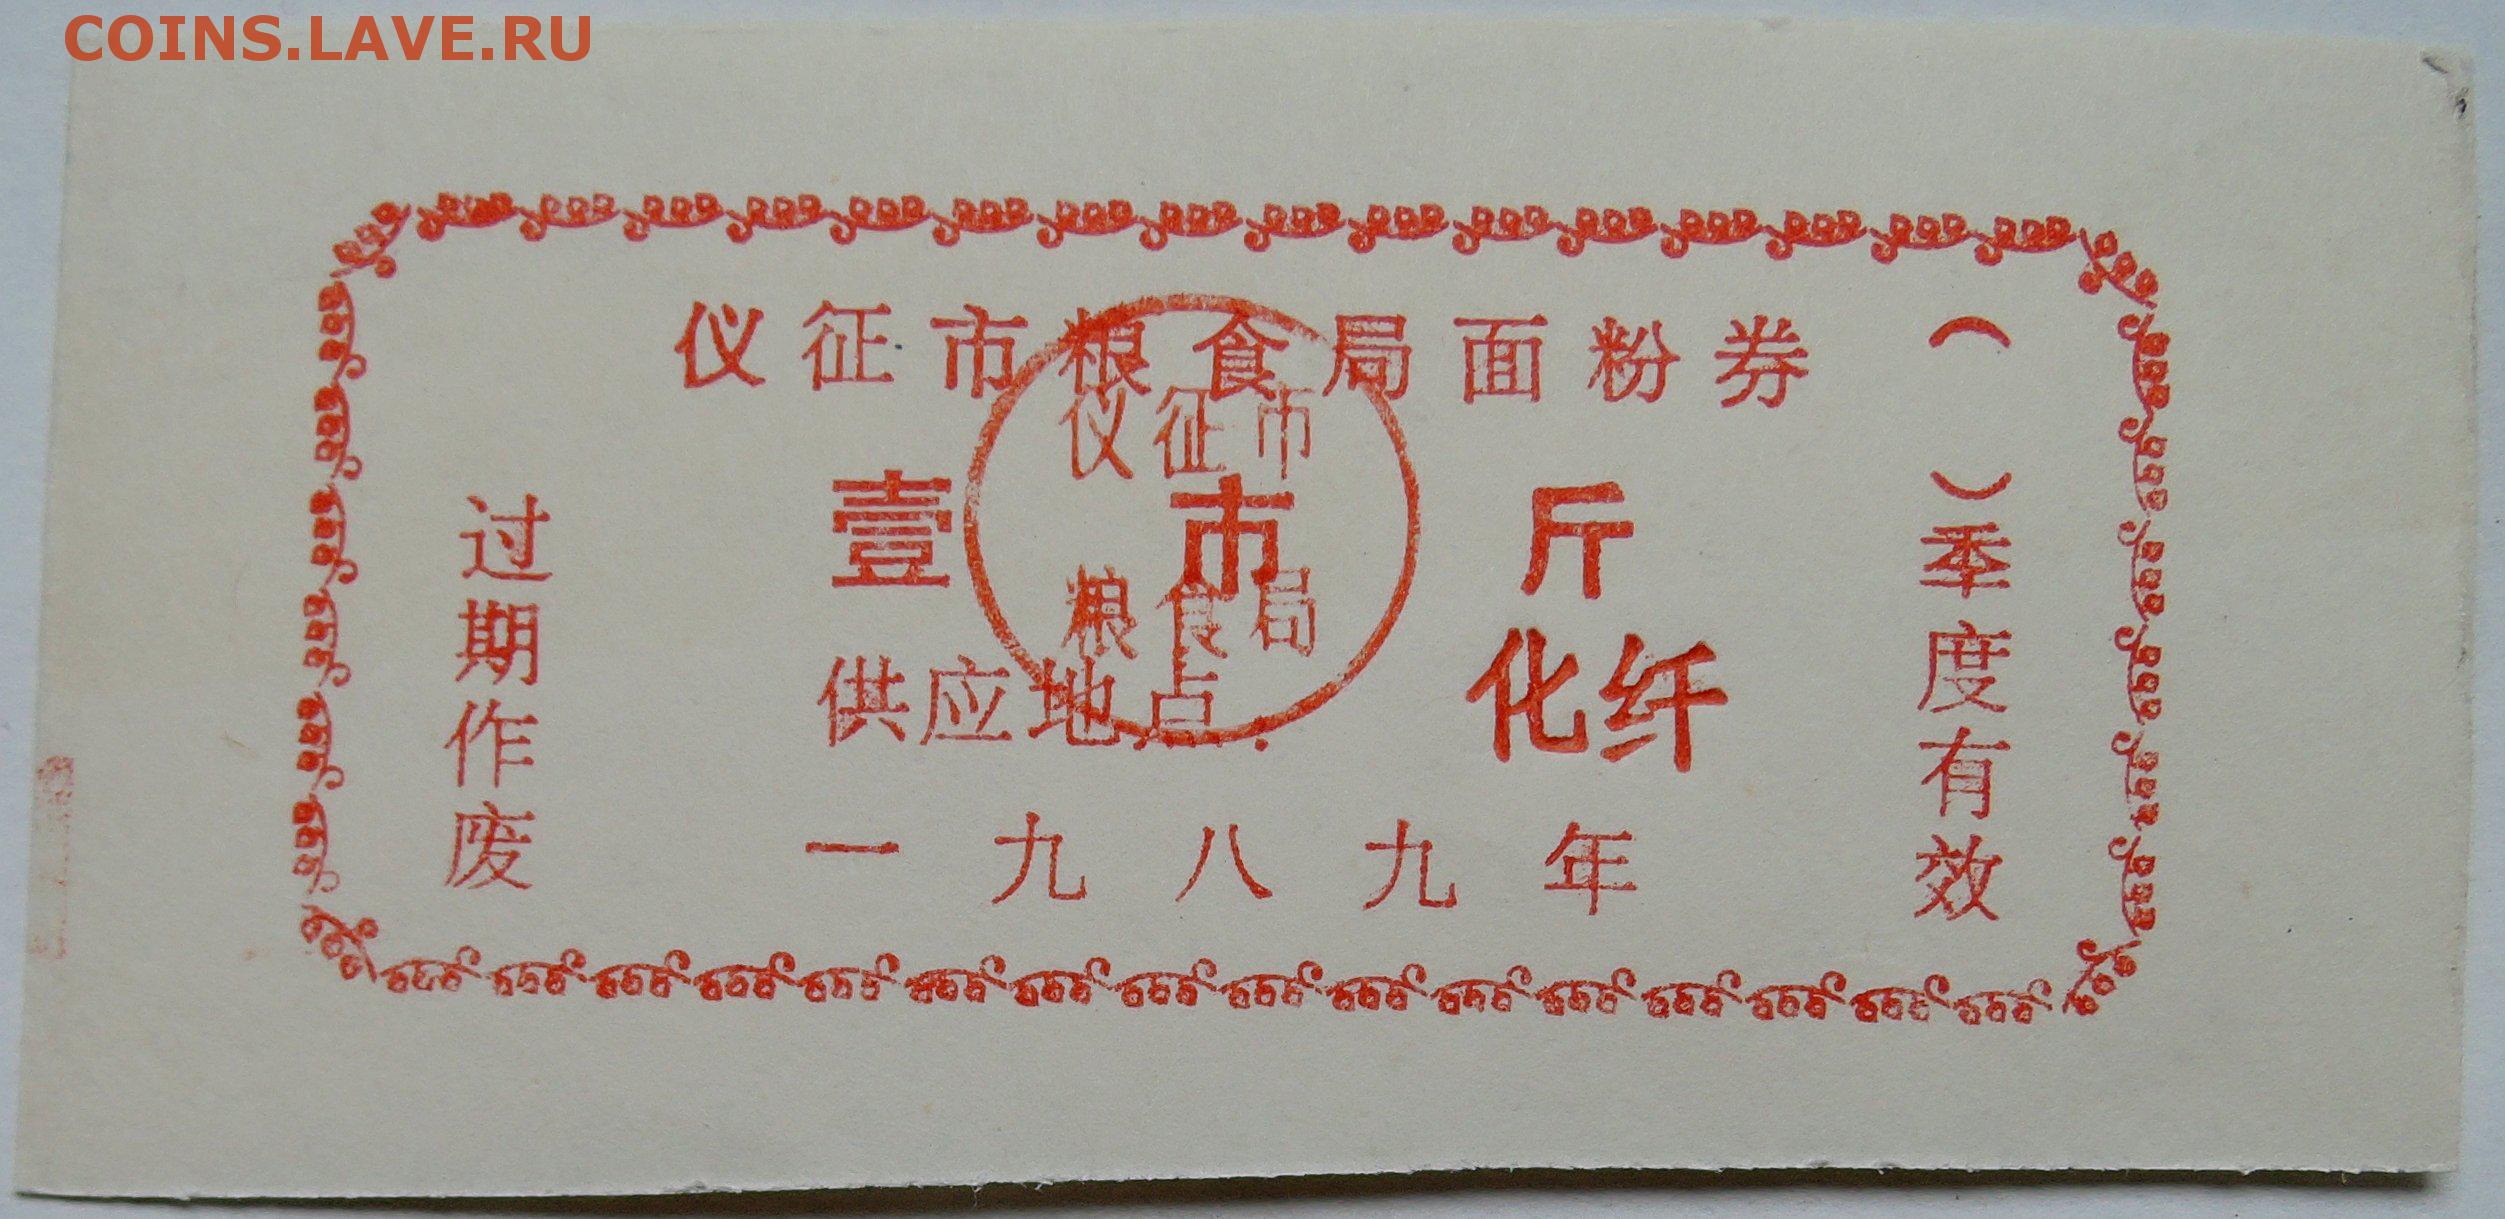 COINS.LAVE.RU
仪征市粮食局面粉券
仪征市
粮食局
壹市斤
供应地点:
化纤
一九八九年
过期作废
( )季度有效